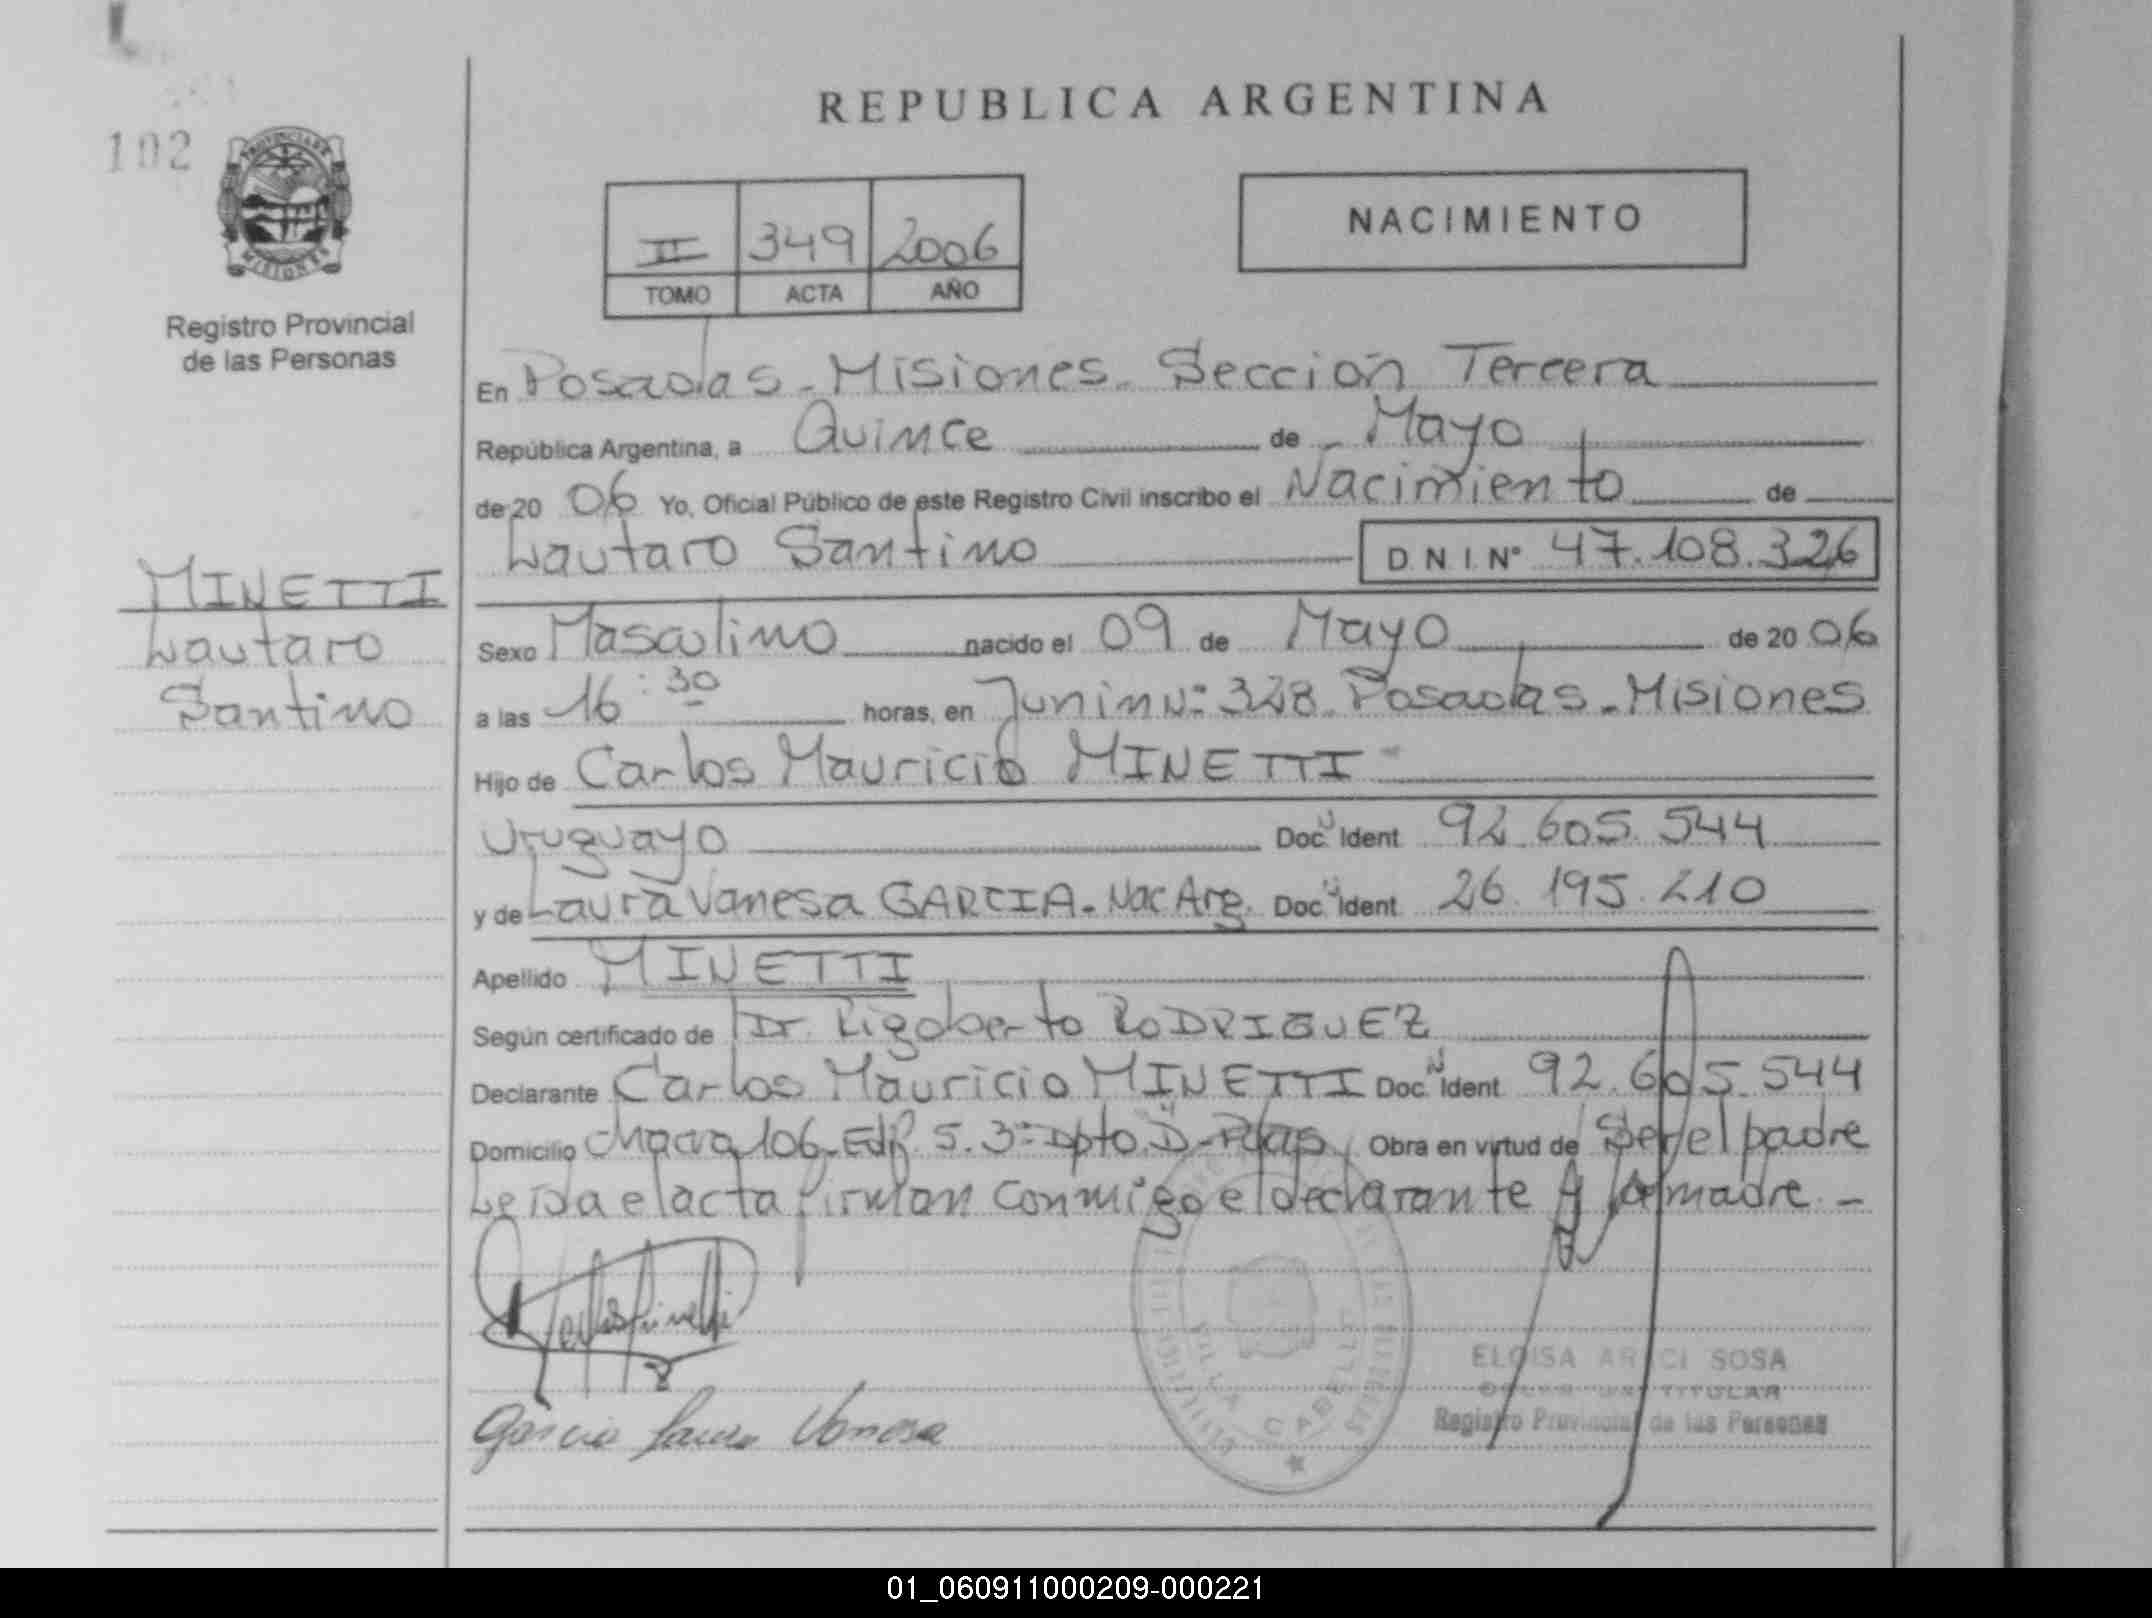 REPUBLICA ARGENTINA
102
PROVINCIA DE
MISIONES
Registro Provincial
de las Personas
II 349 2006
TOMO ACTA AÑO
NACIMIENTO
En Posadas - Misiones - Sección Tercera
República Argentina, a Quince de Mayo
de 20 06 Yo, Oficial Público de este Registro Civil inscribo el Nacimiento de
Lautaro Santino D.N.I. N° 47.108.326
MINETTI
Lautaro
Santino
Sexo Masculino nacido el 09 de Mayo de 20 06
a las 16:30 horas, en Junin Nº 328. Posadas - Misiones
Hijo de Carlos Mauricio MINETTI
Uruguayo Doc. Ident 92.605.544
y de Laura Vanesa GARCIA - Nac Arg. Doc. Ident 26.195.210
Apellido MINETTI
Según certificado de Dr. Rigoberto RODRIGUEZ
Declarante Carlos Mauricio MINETTI Doc. N Ident 92.605.544
Domicilio Chacra 106 - Edif. 5. 3º Dpto. D - Pdas Obra en virtud de Ser el padre
Leida el acta firman conmigo el declarante y la madre. -
Garcia Laura Vanesa
VILLA CABELLO
ELOISA ARACI SOSA
TITULAR
Registro Provincial de las Personas
01_060911000209-000221